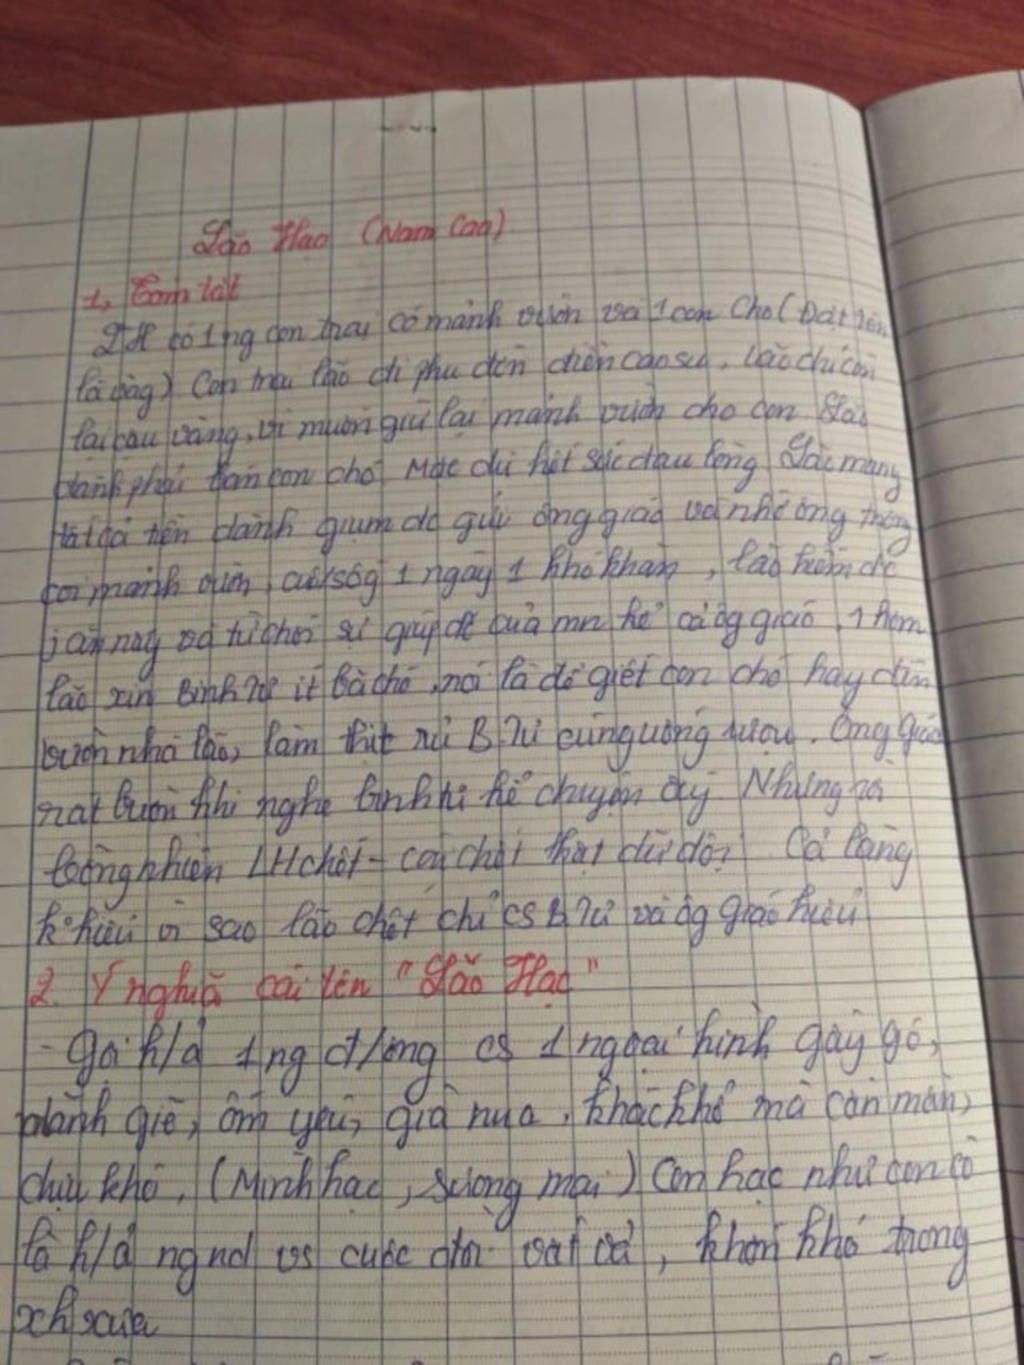 Lão Hạc (Nam Cao)
1, Tóm tắt
LH có 1 ng con trai có mảnh vườn và 1 con chó (Đặt tên
là vàng) Con trai lão đi phu đồn điền cao su, lão chỉ còn
lại cậu vàng, vì muốn giữ lại mảnh vườn cho con Lão
đành phải bán con chó. Mặc dù hết sức đau lòng Lão mang
tất cả tiền dành giụm đc gửi ông giáo và nhờ ông trông
coi mảnh vườn, cuộc sốg 1 ngày 1 khó khăn, lão kiếm đc
j ăn nấy và từ chối sự giúp đỡ của mn kể cả ôg giáo. 1 hôm
lão xin Binh Tư ít bả chó, nói là để giết con chó hay đến
vườn nhà lão, làm thịt rủ B. Tư cùng uống rượu. Ông giáo
rất buồn khi nghe Binh kể chuyện ấy Nhưng rồi
LH chết - cái chết thật dữ dội Cả làng
k hiểu vì sao lão chết chỉ cs B. Tư và ôg giáo hiểu
2. Ý nghĩa cái tên "Lão Hạc"
- Gợi h/ả 1 ng đ/ông cs 1 ngoại hình gầy gò,
mảnh giẻ, ốm yếu, già nua, khắc khổ mà cần mẫn,
chịu khó, (Minh hạc, sương mai) Con hạc như con cò
là h/ả ng nd vs cuộc đời vất vả, khốn khó trong
xh xưa